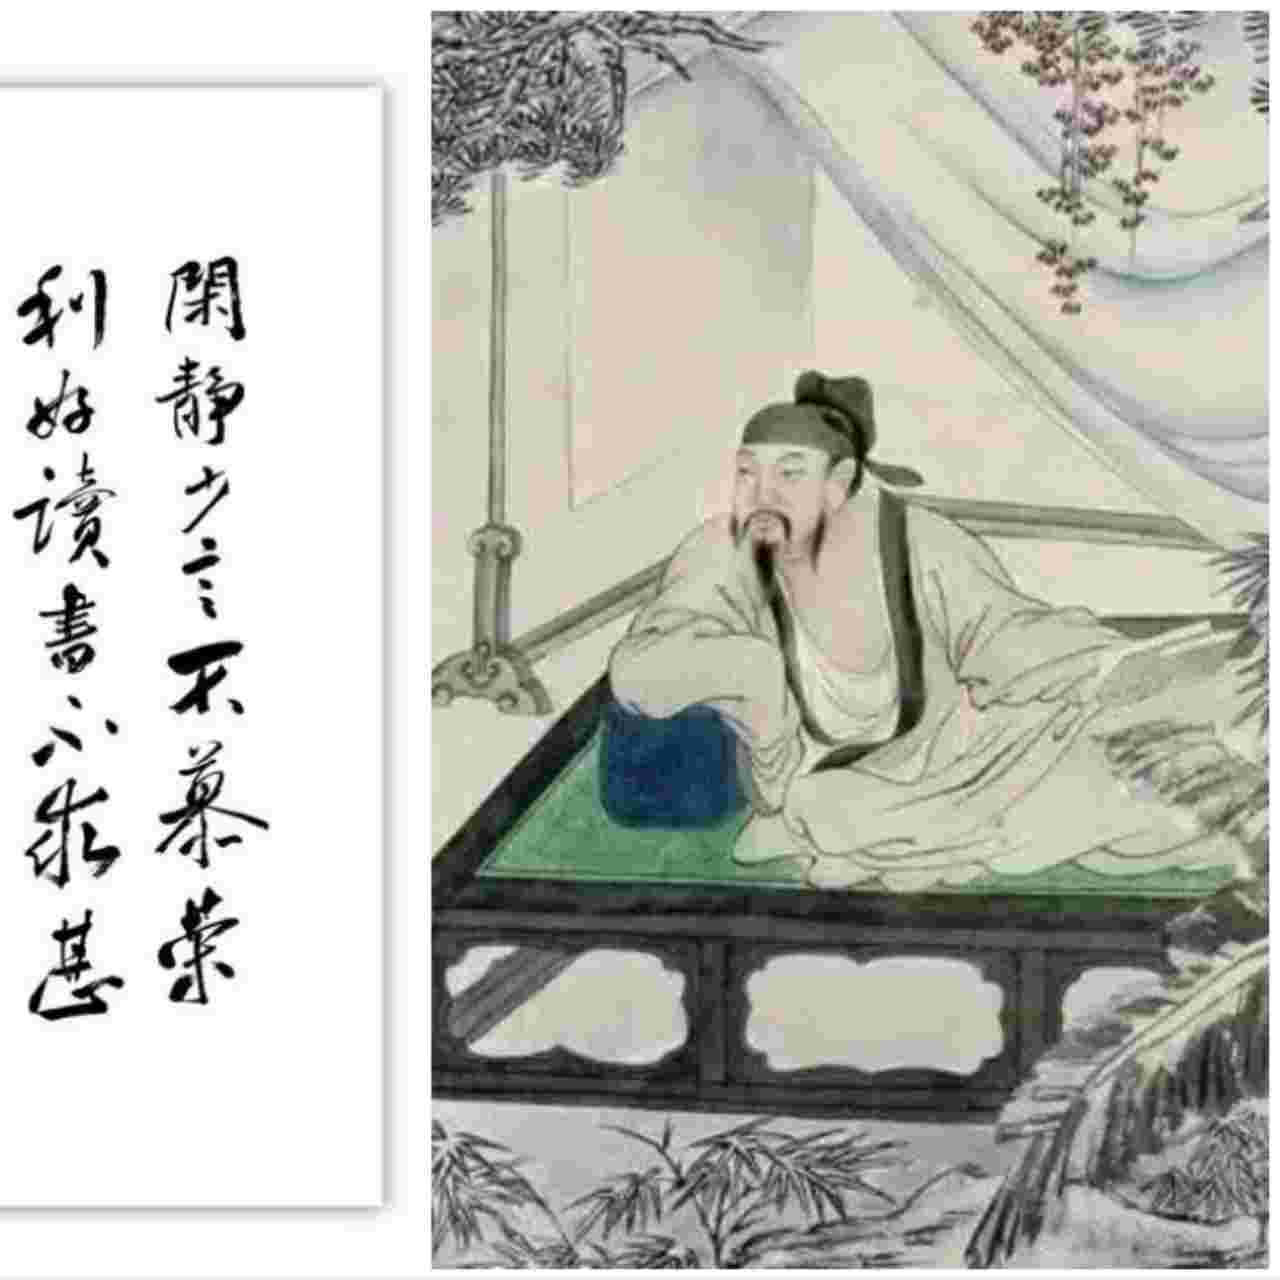 閑靜少言不慕榮
利好讀書不求甚